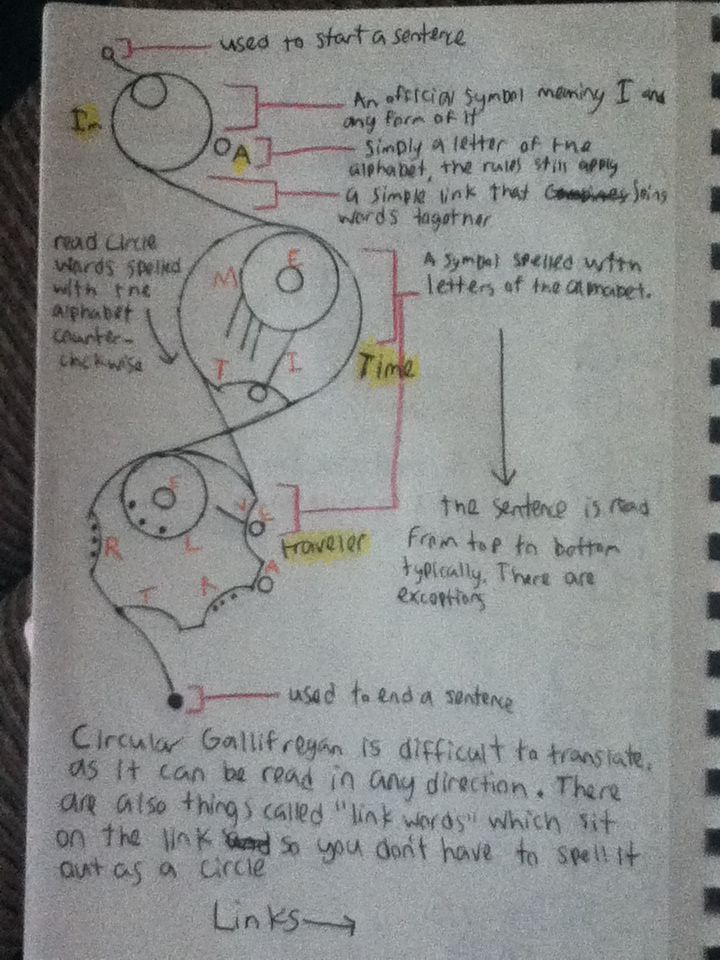 used to start a sentence
An official symbol meaning I and
any form of it
I'm
A
Simply a letter of the
alphabet, the rules still apply
a simple link that joins
words tagother
read circle
words spelled
with the
alphabet
counter-
clockwise
E
M
T
I
Time
A symbol spelled with
letters of the alphabet.
E
V
E
R
L
A
R
T
traveler
the sentence is read
from top to bottom
typically. There are
exceptions
used to end a sentence
Circular Gallifreyan is difficult to translate,
as it can be read in any direction. There
are also things called "link words" which sit
on the link so you don't have to spell it
out as a circle
Links